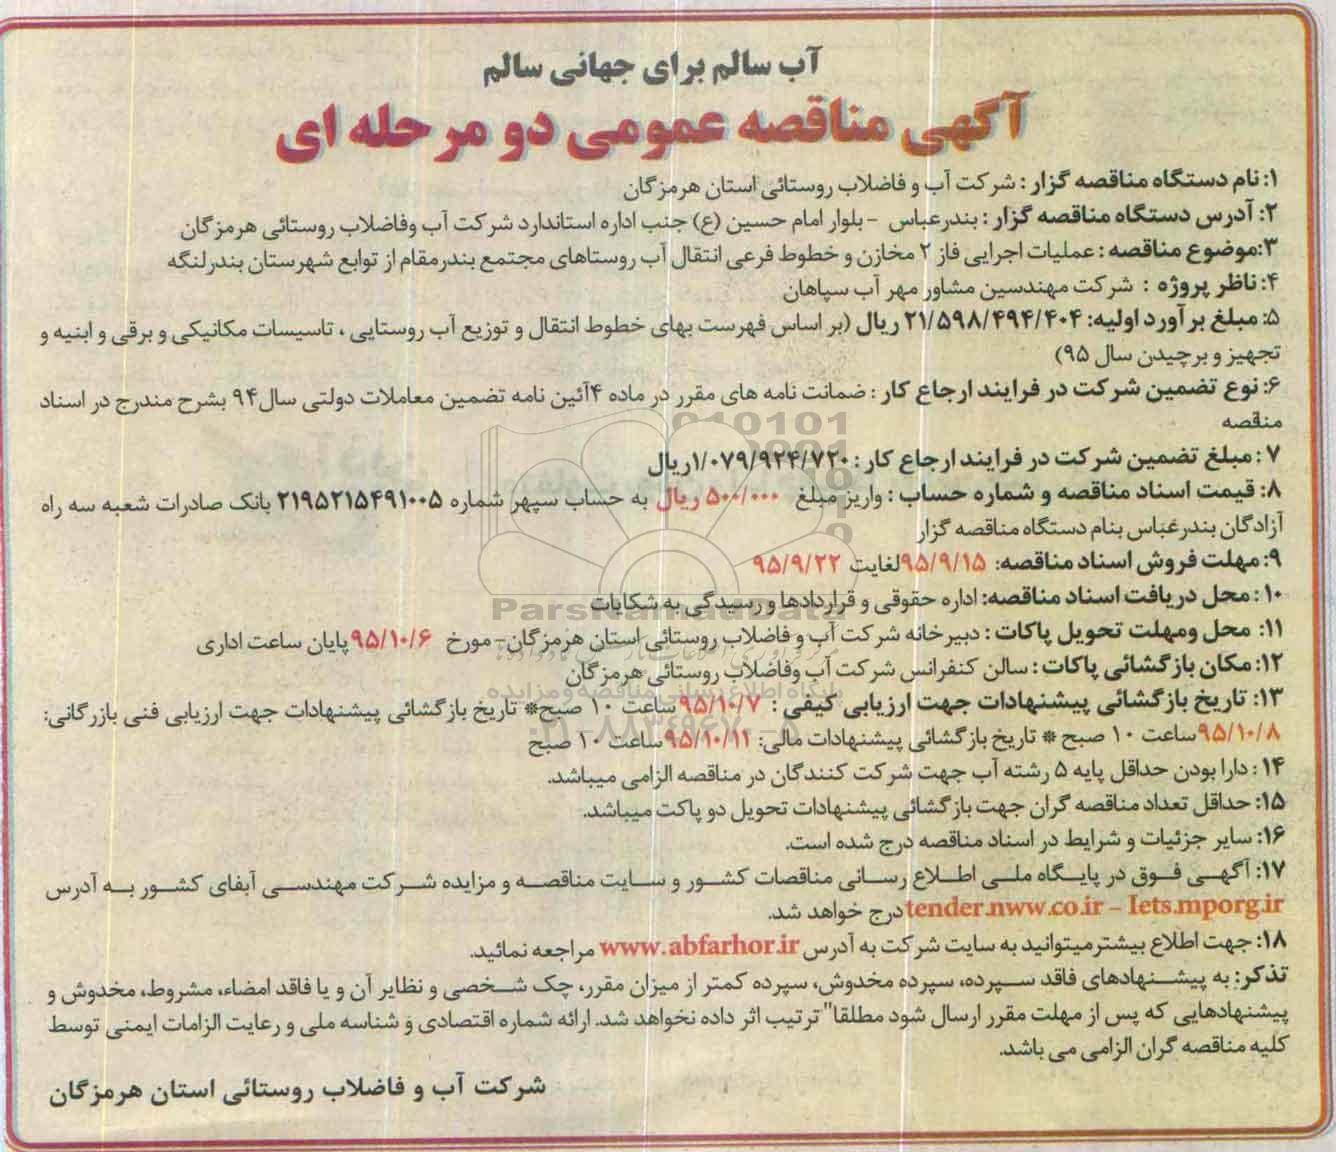 آب سالم برای جهانی سالم
آگهی مناقصه عمومی دو مرحله ای
۱: نام دستگاه مناقصه گزار : شرکت آب و فاضلاب روستائی استان هرمزگان
۲: آدرس دستگاه مناقصه گزار : بندرعباس - بلوار امام حسین (ع) جنب اداره استاندارد شرکت آب وفاضلاب روستائی هرمزگان
۳:موضوع مناقصه : عملیات اجرایی فاز ۲ مخازن و خطوط فرعی انتقال آب روستاهای مجتمع بندرمقام از توابع شهرستان بندرلنگه
۴: ناظر پروژه : شرکت مهندسین مشاور مهر آب سپاهان
۵: مبلغ برآورد اولیه: ۲۱/۵۹۸/۴۹۴/۴۰۴ ریال (بر اساس فهرست بهای خطوط انتقال و توزیع آب روستایی ، تاسیسات مکانیکی و برقی و ابنیه و
تجهیز و برچیدن سال ۹۵)
۶: نوع تضمین شرکت در فرایند ارجاع کار : ضمانت نامه های مقرر در ماده ۴آئین نامه تضمین معاملات دولتی سال۹۴ بشرح مندرج در اسناد
مناقصه
۷ : مبلغ تضمین شرکت در فرایند ارجاع کار : ۱/۰۷۹/۹۲۴/۷۲۰ریال
۸: قیمت اسناد مناقصه و شماره حساب : واریز مبلغ ۵۰۰/۰۰۰ ریال به حساب سپهر شماره ۲۱۹۵۲۱۵۴۹۱۰۰۵ بانک صادرات شعبه سه راه
آزادگان بندرعباس بنام دستگاه مناقصه گزار
۹: مهلت فروش اسناد مناقصه: ۹۵/۹/۱۵لغایت ۹۵/۹/۲۲
۱۰ : محل دریافت اسناد مناقصه: اداره حقوقی و قراردادها و رسیدگی به شکایات
۱۱: محل ومهلت تحویل پاکات : دبیرخانه شرکت آب و فاضلاب روستائی استان هرمزگان- مورخ ۹۵/۱۰/۶پایان ساعت اداری
۱۲: مکان بازگشائی پاکات : سالن کنفرانس شرکت آب وفاضلاب روستائی هرمزگان
۱۳: تاریخ بازگشائی پیشنهادات جهت ارزیابی کیفی : ۹۵/۱۰/۷ساعت ۱۰ صبح* تاریخ بازگشائی پیشنهادات جهت ارزیابی فنی بازرگانی:
۹۵/۱۰/۸ساعت ۱۰ صبح * تاریخ بازگشائی پیشنهادات مالی: ۹۵/۱۰/۱۱ساعت ۱۰ صبح
۱۴ : دارا بودن حداقل پایه ۵ رشته آب جهت شرکت کنندگان در مناقصه الزامی میباشد.
۱۵: حداقل تعداد مناقصه گران جهت بازگشائی پیشنهادات تحویل دو پاکت میباشد.
۱۶: سایر جزئیات و شرایط در اسناد مناقصه درج شده است.
۱۷: آگهی فوق در پایگاه ملی اطلاع رسانی مناقصات کشور و سایت مناقصه و مزایده شرکت مهندسی آبفای کشور به آدرس
tender.nww.co.ir – Iets.mporg.ir درج خواهد شد.
۱۸: جهت اطلاع بیشترمیتوانید به سایت شرکت به آدرس www.abfarhor.ir مراجعه نمائید.
تذکر: به پیشنهادهای فاقد سپرده، سپرده مخدوش، سپرده کمتر از میزان مقرر، چک شخصی و نظایر آن و یا فاقد امضاء، مشروط، مخدوش و
پیشنهادهایی که پس از مهلت مقرر ارسال شود مطلقا" ترتیب اثر داده نخواهد شد. ارائه شماره اقتصادی و شناسه ملی و رعایت الزامات ایمنی توسط
کلیه مناقصه گران الزامی می باشد.
شرکت آب و فاضلاب روستائی استان هرمزگان
ParsNamadData
پایگاه اطلاع رسانی مناقصه و مزایده